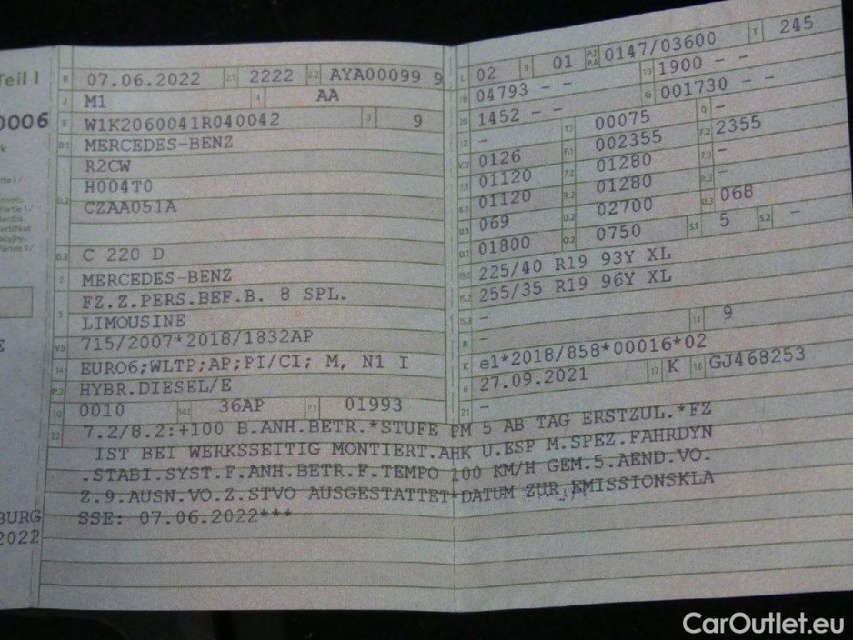 Teil I
0006
BURG
2022
B 07.06.2022 2.1 2222 2.2 AYA00099 9
J M1 4 AA
E W1K2060041R040042 3 9
D.1 MERCEDES-BENZ
D.2 R2CW
H004T0
CZAA051A
D.3 C 220 D
2 MERCEDES-BENZ
5 FZ.Z.PERS.BEF.B. 8 SPL.
LIMOUSINE
V.9 715/2007*2018/1832AP
14 EURO6;WLTP;AP;PI/CI; M, N1 I
P.3 HYBR.DIESEL/E
10 0010 14.1 36AP P.1 01993
L 02 9 01 P.2 P.4 0147/03600 T 245
18 04793 - - 19 1900 - -
20 1452 - - G 001730 - -
12 - 13 00075 Q -
V.7 0126 F.1 002355 F.2 2355
7.1 01120 7.2 01280 7.3 -
8.1 01120 8.2 01280 8.3 -
U.1 069 U.2 02700 U.3 068
O.1 01800 O.2 0750 S.1 5 S.2 -
15.1 225/40 R19 93Y XL
15.2 255/35 R19 96Y XL
15.3 -
R - 11 9
K e1*2018/858*00016*02
6 27.09.2021 17 K 16 GJ468253
21 -
22 7.2/8.2:+100 B.ANH.BETR.*STUFE PM 5 AB TAG ERSTZUL.*FZ
IST BEI WERKSSEITIG MONTIERT.AHK U.ESP M.SPEZ.FAHRDYN
.STABI.SYST.F.ANH.BETR.F.TEMPO 100 KM/H GEM.5.AEND.VO.
Z.9.AUSN.VO.Z.STVO AUSGESTATTET*DATUM ZUR EMISSIONSKLA
SSE: 07.06.2022***
CarOutlet.eu